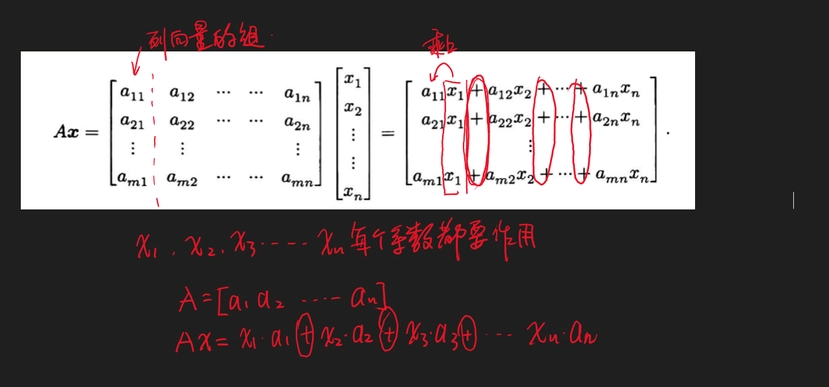 列向量的组 乘上
Ax = [a11 a12 ··· ··· a1n; a21 a22 ··· ··· a2n; ⋮ ⋮ ⋮; am1 am2 ··· ··· amn] [x1; x2; ⋮; ⋮; xn] = [a11x1 + a12x2 + ··· + a1nxn; a21x1 + a22x2 + ··· + a2nxn; ⋮; am1x1 + am2x2 + ··· + amnxn].
x1, x2, x3 ····· xn 每个系数都要作用
A=[a1 a2 ····· an]
Ax= x1·a1 + x2·a2 + x3·a3 + ··· xn·an